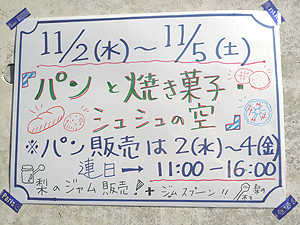 11/2(水)～11/5(土)
パンと焼き菓子
シュシュの空
※パン販売は2(水)～4(金)
連日→11:00-16:00
梨のジャム販売！＋ジャムスプーン!!